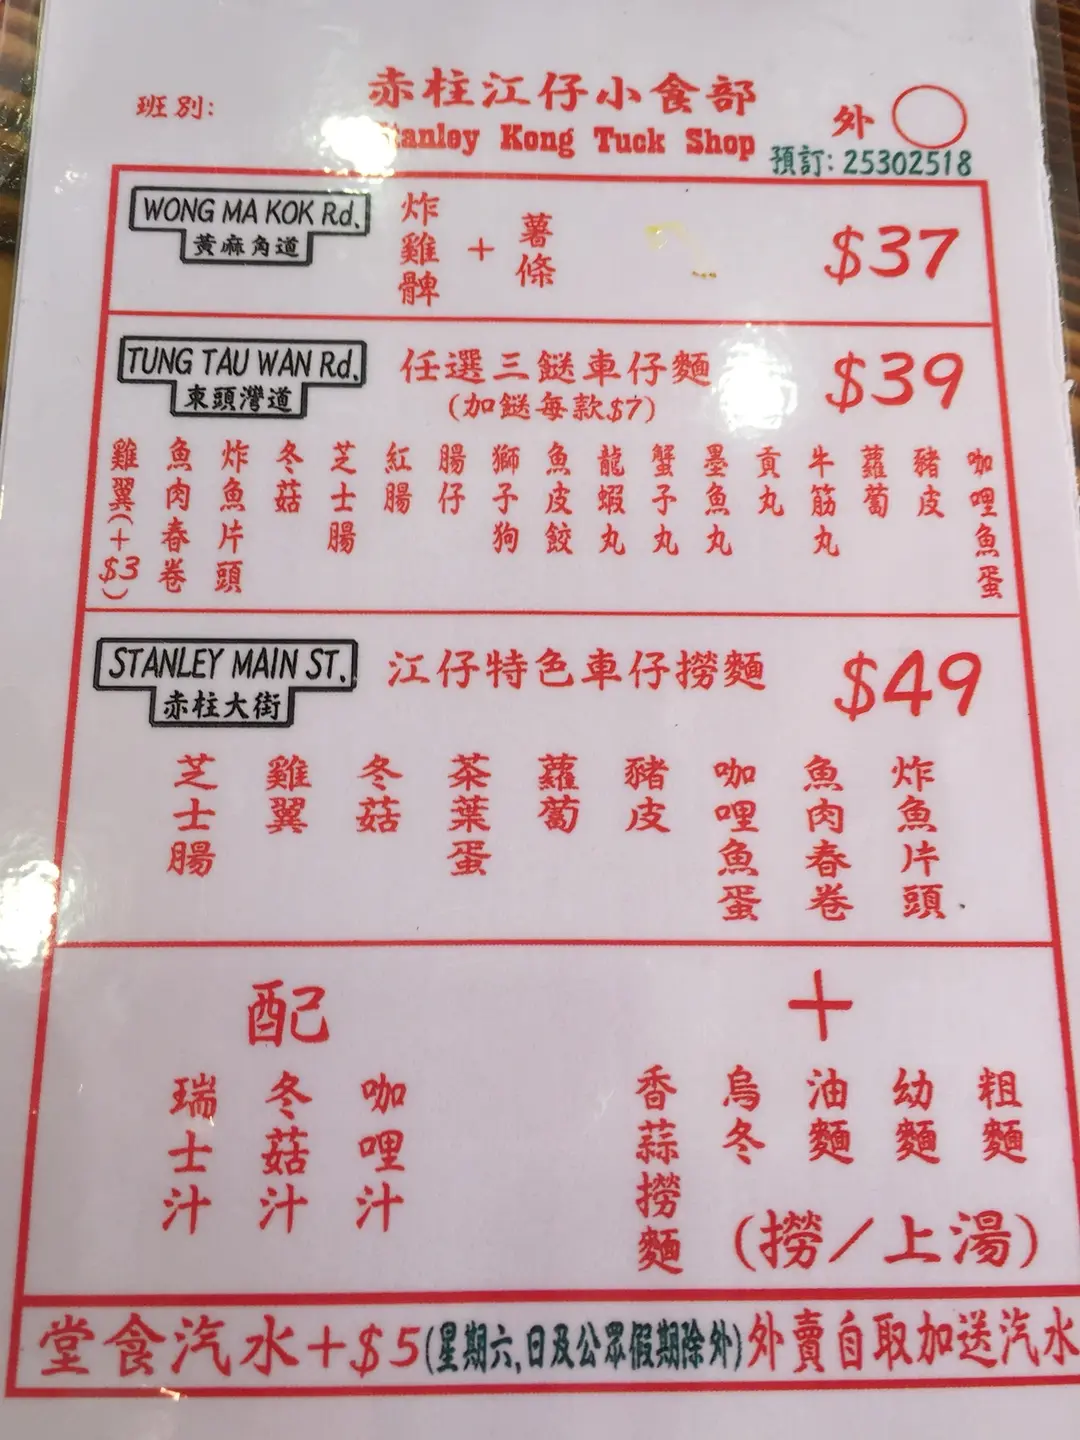 班別:
赤柱江仔小食部
Stanley Kong Tuck Shop
外
預訂: 25302518
WONG MA KOK Rd.
黃麻角道
炸雞髀
+
薯條
$37
TUNG TAU WAN Rd.
東頭灣道
任選三餸車仔麵
(加餸每款$7)
$39
咖哩魚蛋
豬皮
蘿蔔
牛筋丸
貢丸
墨魚丸
蟹子丸
龍蝦丸
魚皮餃
獅子狗
腸仔
紅腸
芝士腸
冬菇
炸魚片頭
魚肉春卷
雞翼(+$3)
STANLEY MAIN ST.
赤柱大街
江仔特色車仔撈麵
$49
炸魚片頭
魚肉春卷
咖哩魚蛋
豬皮
蘿蔔
茶葉蛋
冬菇
雞翼
芝士腸
配
咖哩汁
冬菇汁
瑞士汁
+
粗麵
幼麵
油麵
烏冬
香蒜撈麵
(撈/上湯)
堂食汽水+$5(星期六,日及公眾假期除外)外賣自取加送汽水